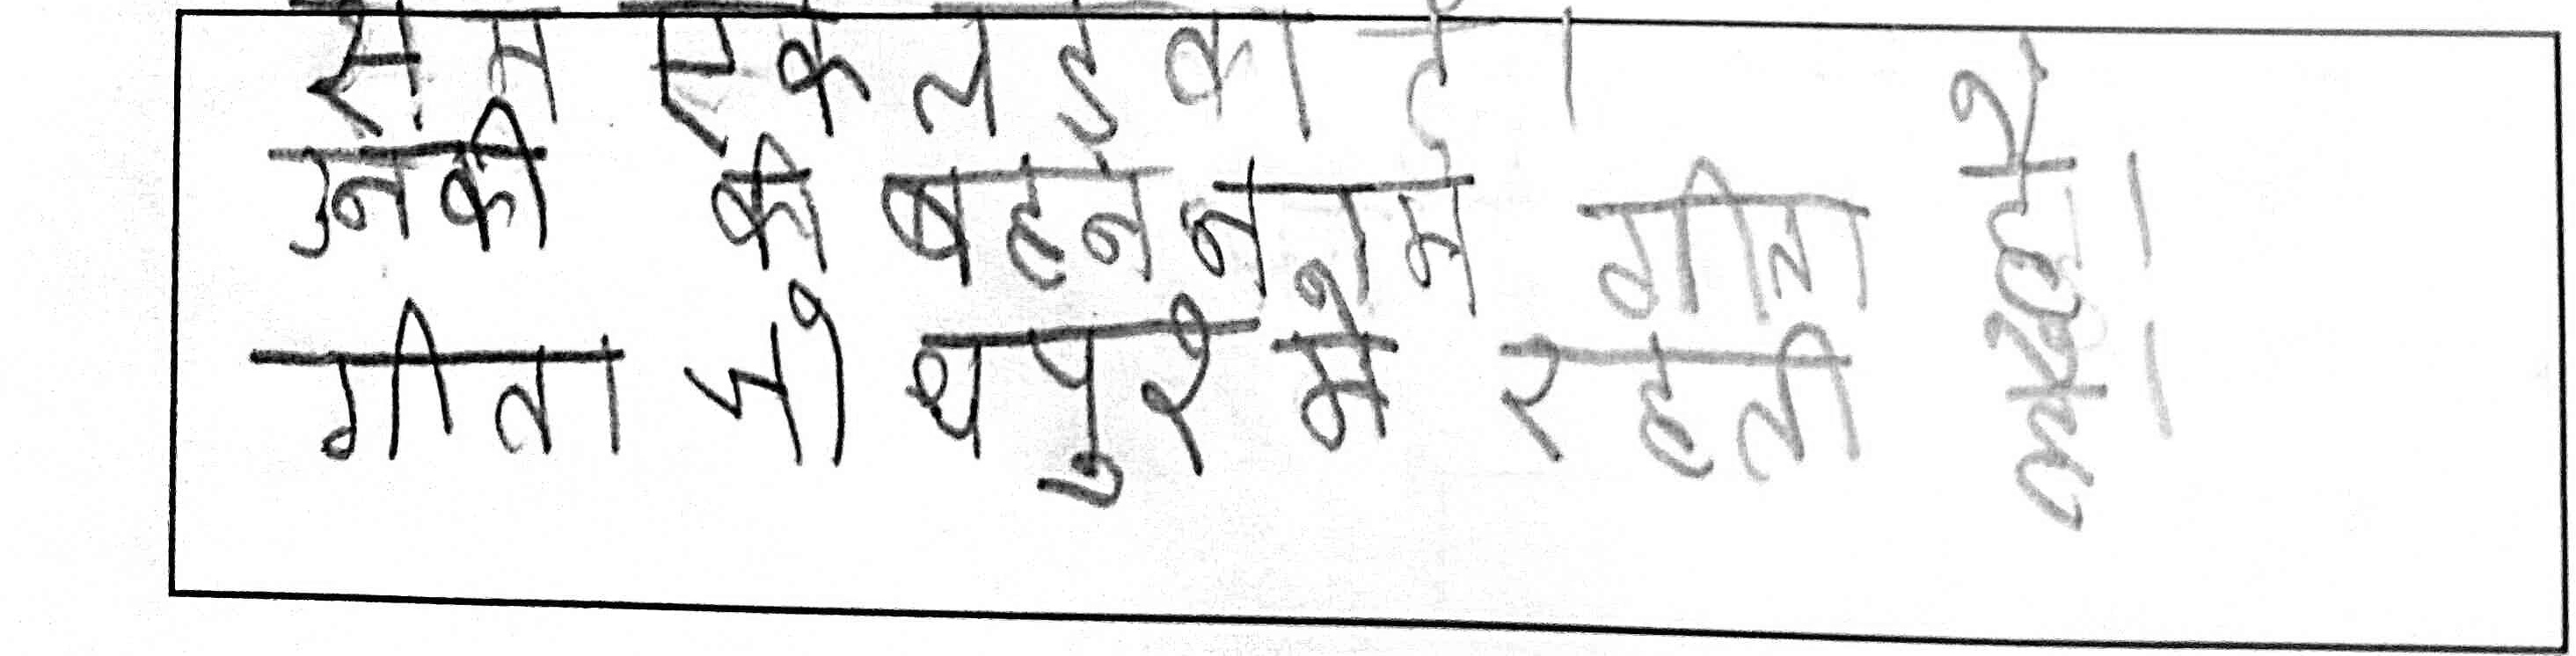 राम एक लडका है।
उनकी की बहन नाम गीता है।
गीता जोधपुर मे रहती है।